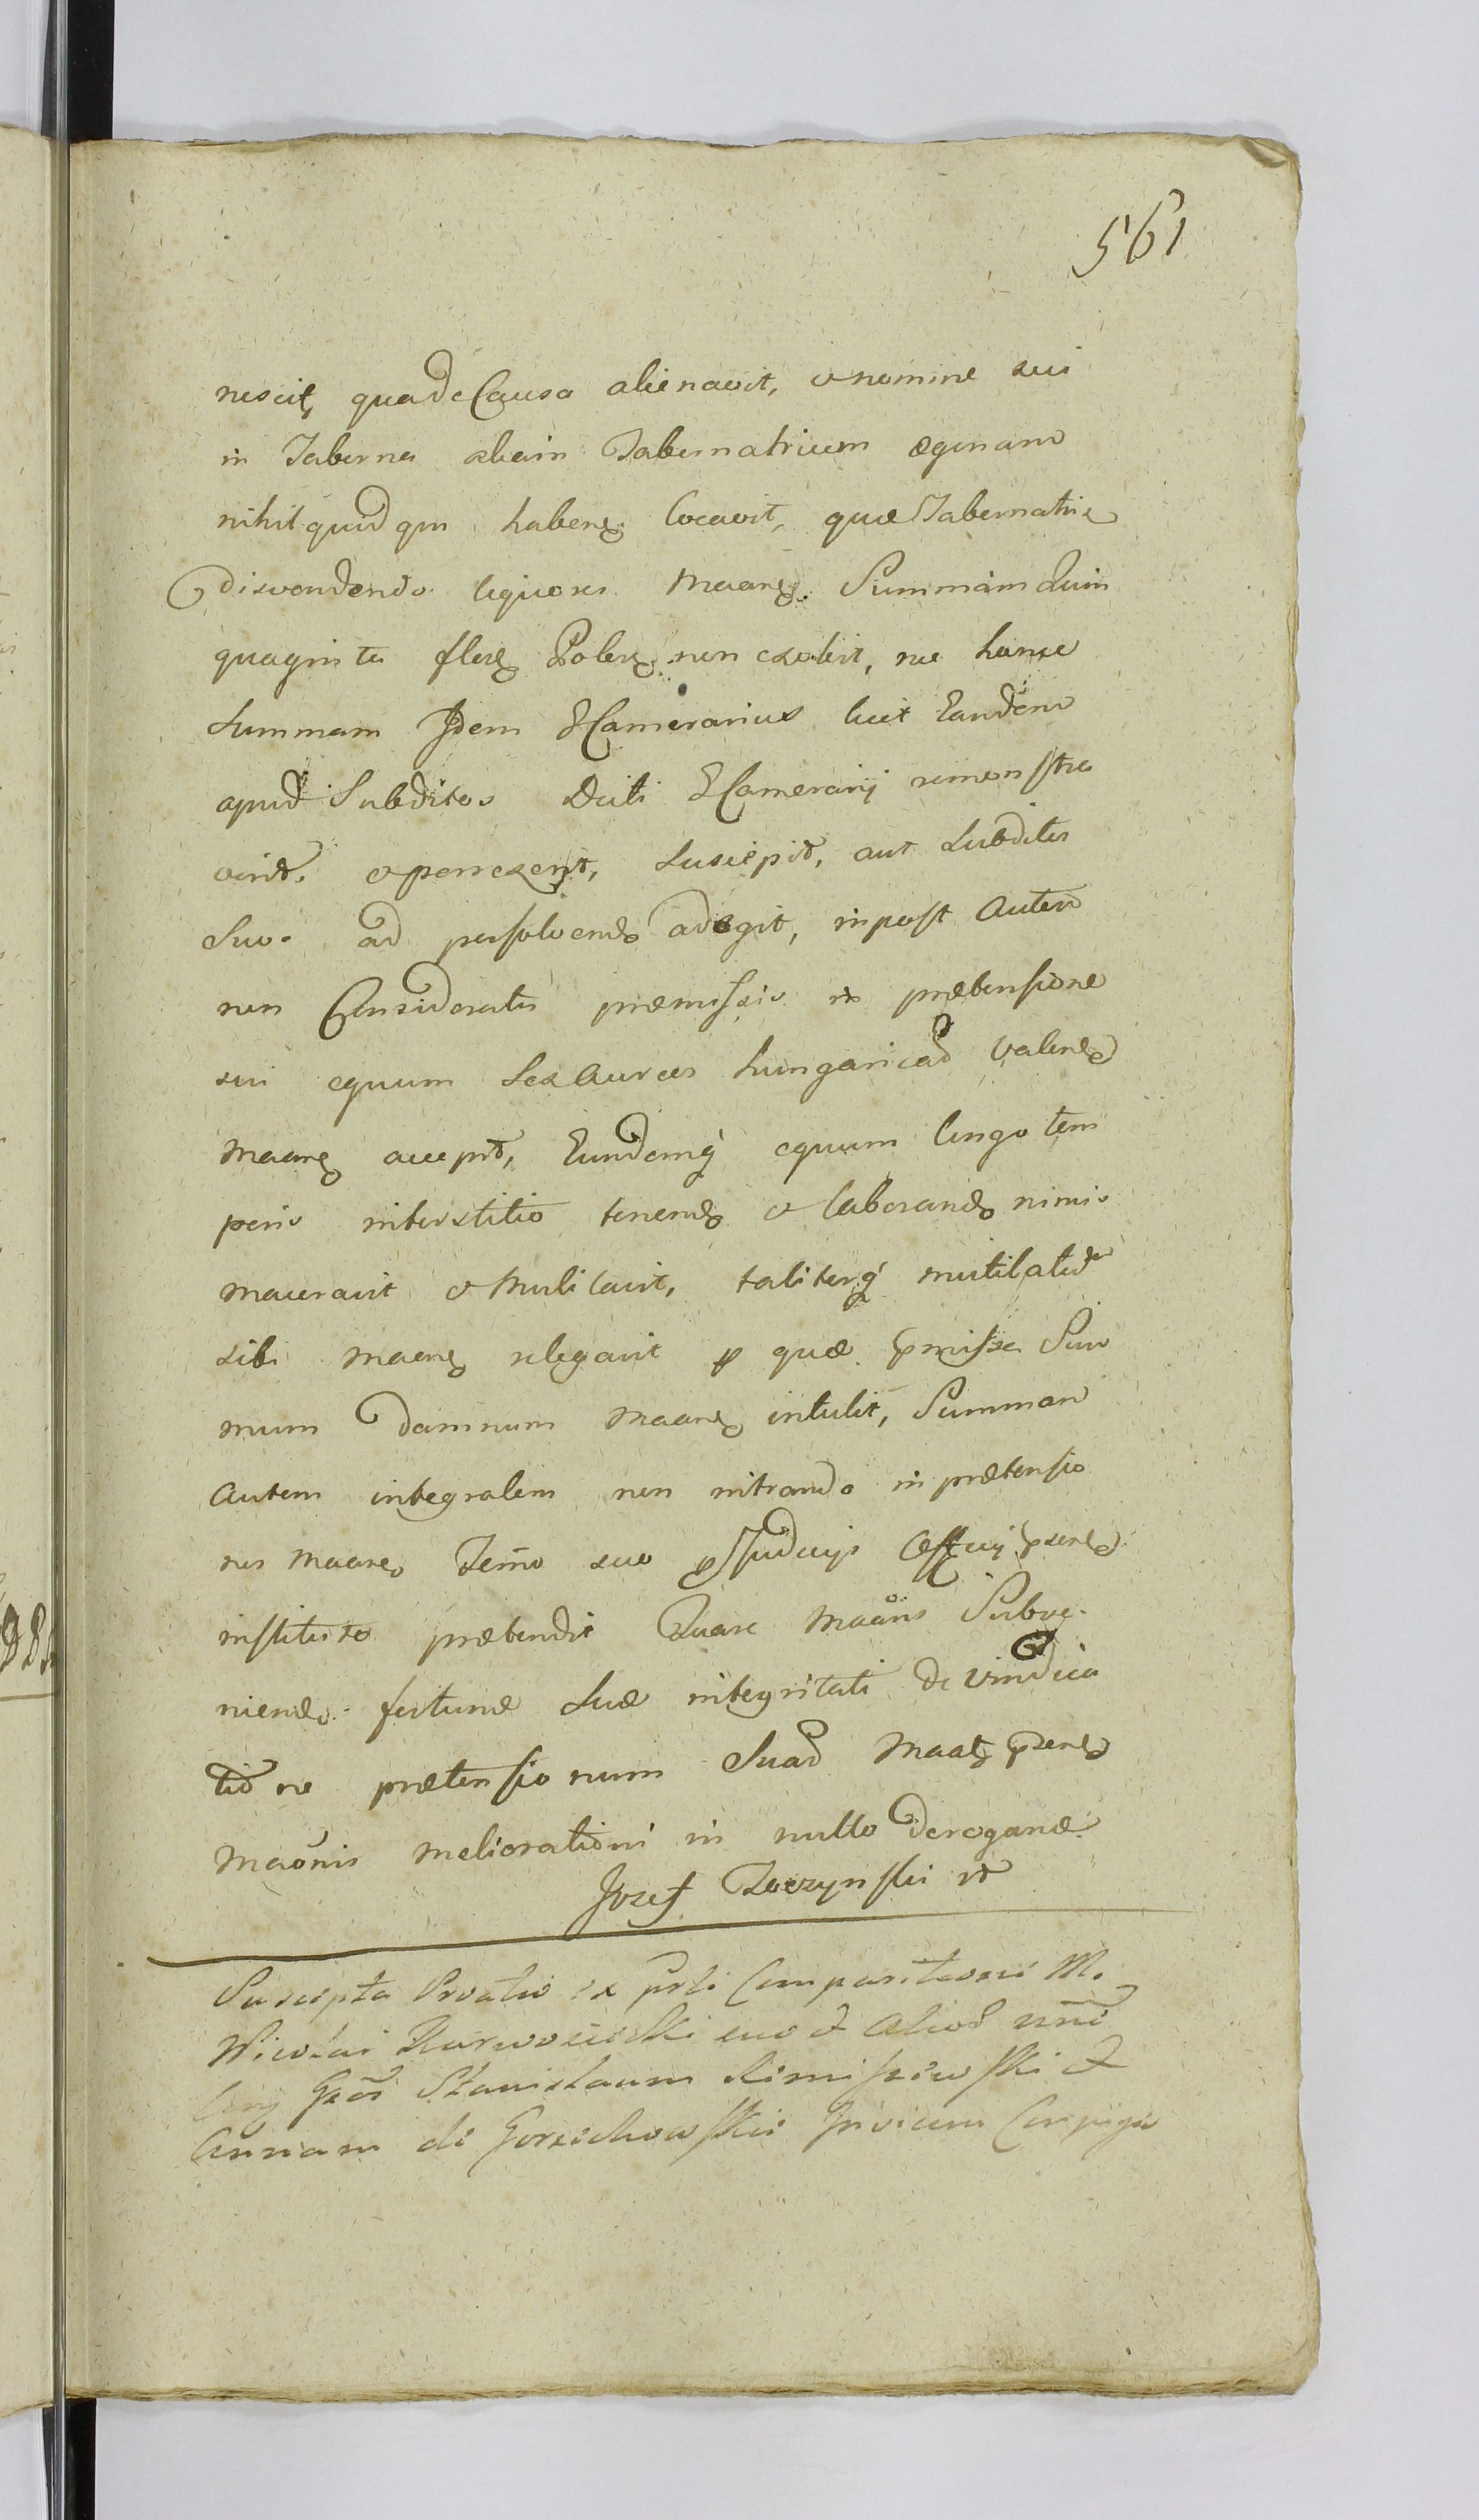 561
nescit, qua de Causa alienavit, et nomine sui
in Taberna aliam Tabernatricem egenam
nihil quidqm habene. locavit, quæ Tabernatrix
disvendendo liquores Maane. Summam Quin
quaginta flor Polon. non exolvit, nec hance
Summam Idem GCamerarius licet Eandem
apud Subditos Dicti GCamerarij remonstra
verit. et perrexerit, suscepit, aut Subditos
Suos ad persolvend adegit, in post Autem
non Consideratis præmissis ex prætensione
sui equum Sex Aureos hungarical valene
Maane accepit, Eundemq equum longo tem
poris interstitio tenendo et laborando nimis
maceravit et Mutilavit, taliterq mutilatum
sibi Maane relegavit p quæ pmissa Sum
mum damnum Maane intulit, Summam
Autem integralem non intrando in prætensio
nes Maane Termo suo p Judicijs Offcij psene
instituto prætendit Quare Maans Subve
niendo fortunæ Suæ integritati de vindica
tione prætensionum Suad Maat psene
Maonis meliorationi in nullo derogane
Jozef Toczynski
Suscepta Protio ex prti Comparitione M.
Nicolai Karwosiecki suo et Aliod nni
Gsos Stanislaum Rimiszewski et
Annam de Gorzechowskie Invicem Conjuges